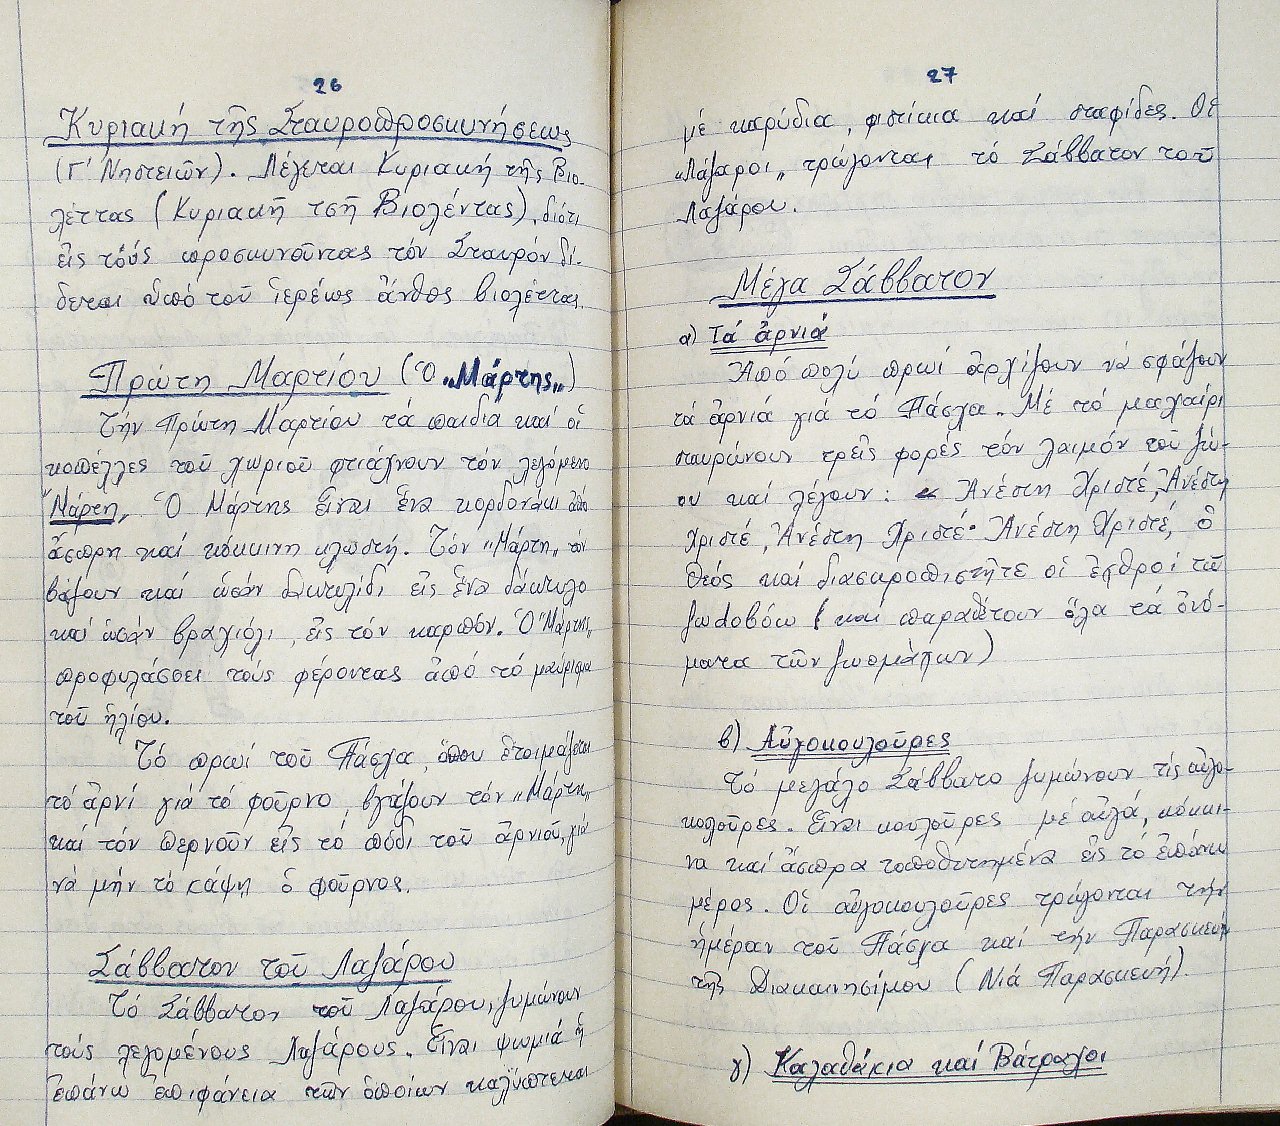 26
Κυριακή τῆς Σταυροπροσκυνήσεως
(Γ' Νηστειῶν). Λέγεται Κυριακή τῆς Βιο-
λέττας (Κυριακῆ τσῆ Βιολέντας), διότι
εἰς τούς προσκυνοῦντας τόν Σταυρόν δί-
δεται ὑπό τοῦ ἱερέως ἄνθος βιολέττας.
Πρώτη Μαρτίου (Ὁ „Μάρτης„)
Τήν Πρώτη Μαρτίου τά παιδιά καί οἱ
κοπέλλες τοῦ χωριοῦ φτιάχνουν τόν λεγόμενο
"Μάρτη„. Ὁ Μάρτης εἶναι ἕνα κορδονάκι ἀπό
ἄσπρη καί κόκκινη κλωστή. Τόν „Μάρτη„ τόν
βάζουν καί ὡσάν δαχτυλίδι εἰς ἕνα δάκτυλο
καί ὡσάν βραχιόλι, εἰς τόν καρπόν. Ὁ "Μάρτης„
προφυλάσσει τούς φέροντας ἀπό τό μαύρισμα
τοῦ ἡλίου.
Τό πρωί τοῦ Πάσχα, ὅπου ἑτοιμάζεται
τό ἀρνί γιά τό φοῦρνο, βγάζουν τόν „Μάρτη„
καί τόν περνοῦν εἰς τό πόδι τοῦ ἀρνιοῦ, γιά
νά μήν τό κάψη ὁ φοῦρνος.
Σάββατον τοῦ Λαζάρου
Τό Σάββατον τοῦ Λαζάρου, ζυμώνουν
τούς λεγομένους Λαζάρους. Εἶναι ψωμιά ἡ
ἐπάνω ἐπιφάνεια τῶν ὁποίων καλύπτεται
27
μέ καρύδια, φιστίκια καί σταφίδες. Οἱ
„Λάζαροι„ τρώγονται τό Σάββατον τοῦ
Λαζάρου.
Μέγα Σάββατον
α) Τά ἀρνιά
Ἀπό πολύ πρωί ἀρχίζουν νά σφάζουν
τά ἀρνιά γιά τό Πάσχα. Μέ τό μαχαίρι
σταυρώνουν τρεῖς φορές τόν λαιμόν τοῦ ζώ-
ου καί λέγουν: « Ἀνέστη Χριστέ, Ἀνέστη
Χριστέ, Ἀνέστη Χριστέ· Ἀνέστη Χριστέ, ὁ
Θεός καί διασκροπιστῆτε οἱ ἐχθροί τῶ
ζωdοβόω (καί παραθέτουν ὅλα τά ὀνό-
ματα τῶν)
β) Αὐγοκουλοῦρες
Τό μεγάλο Σάββατο ζυμώνουν τίς αὐγο-
κολοῦρες. Εἶναι κουλοῦρες μέ αὐγά, κόκκι-
να καί ἄσπρα τοποθετημένα εἰς τό ἐπάνω
μέρος. Οἱ αὐγοκουλοῦρες τρώγονται τήν
ἡμέραν τοῦ Πάσχα καί τήν Παρασκευήν
τῆς Διακαινησίμου (Νιά Παρασκευή).
γ) Καλαθάκια καί Βάτραχοι